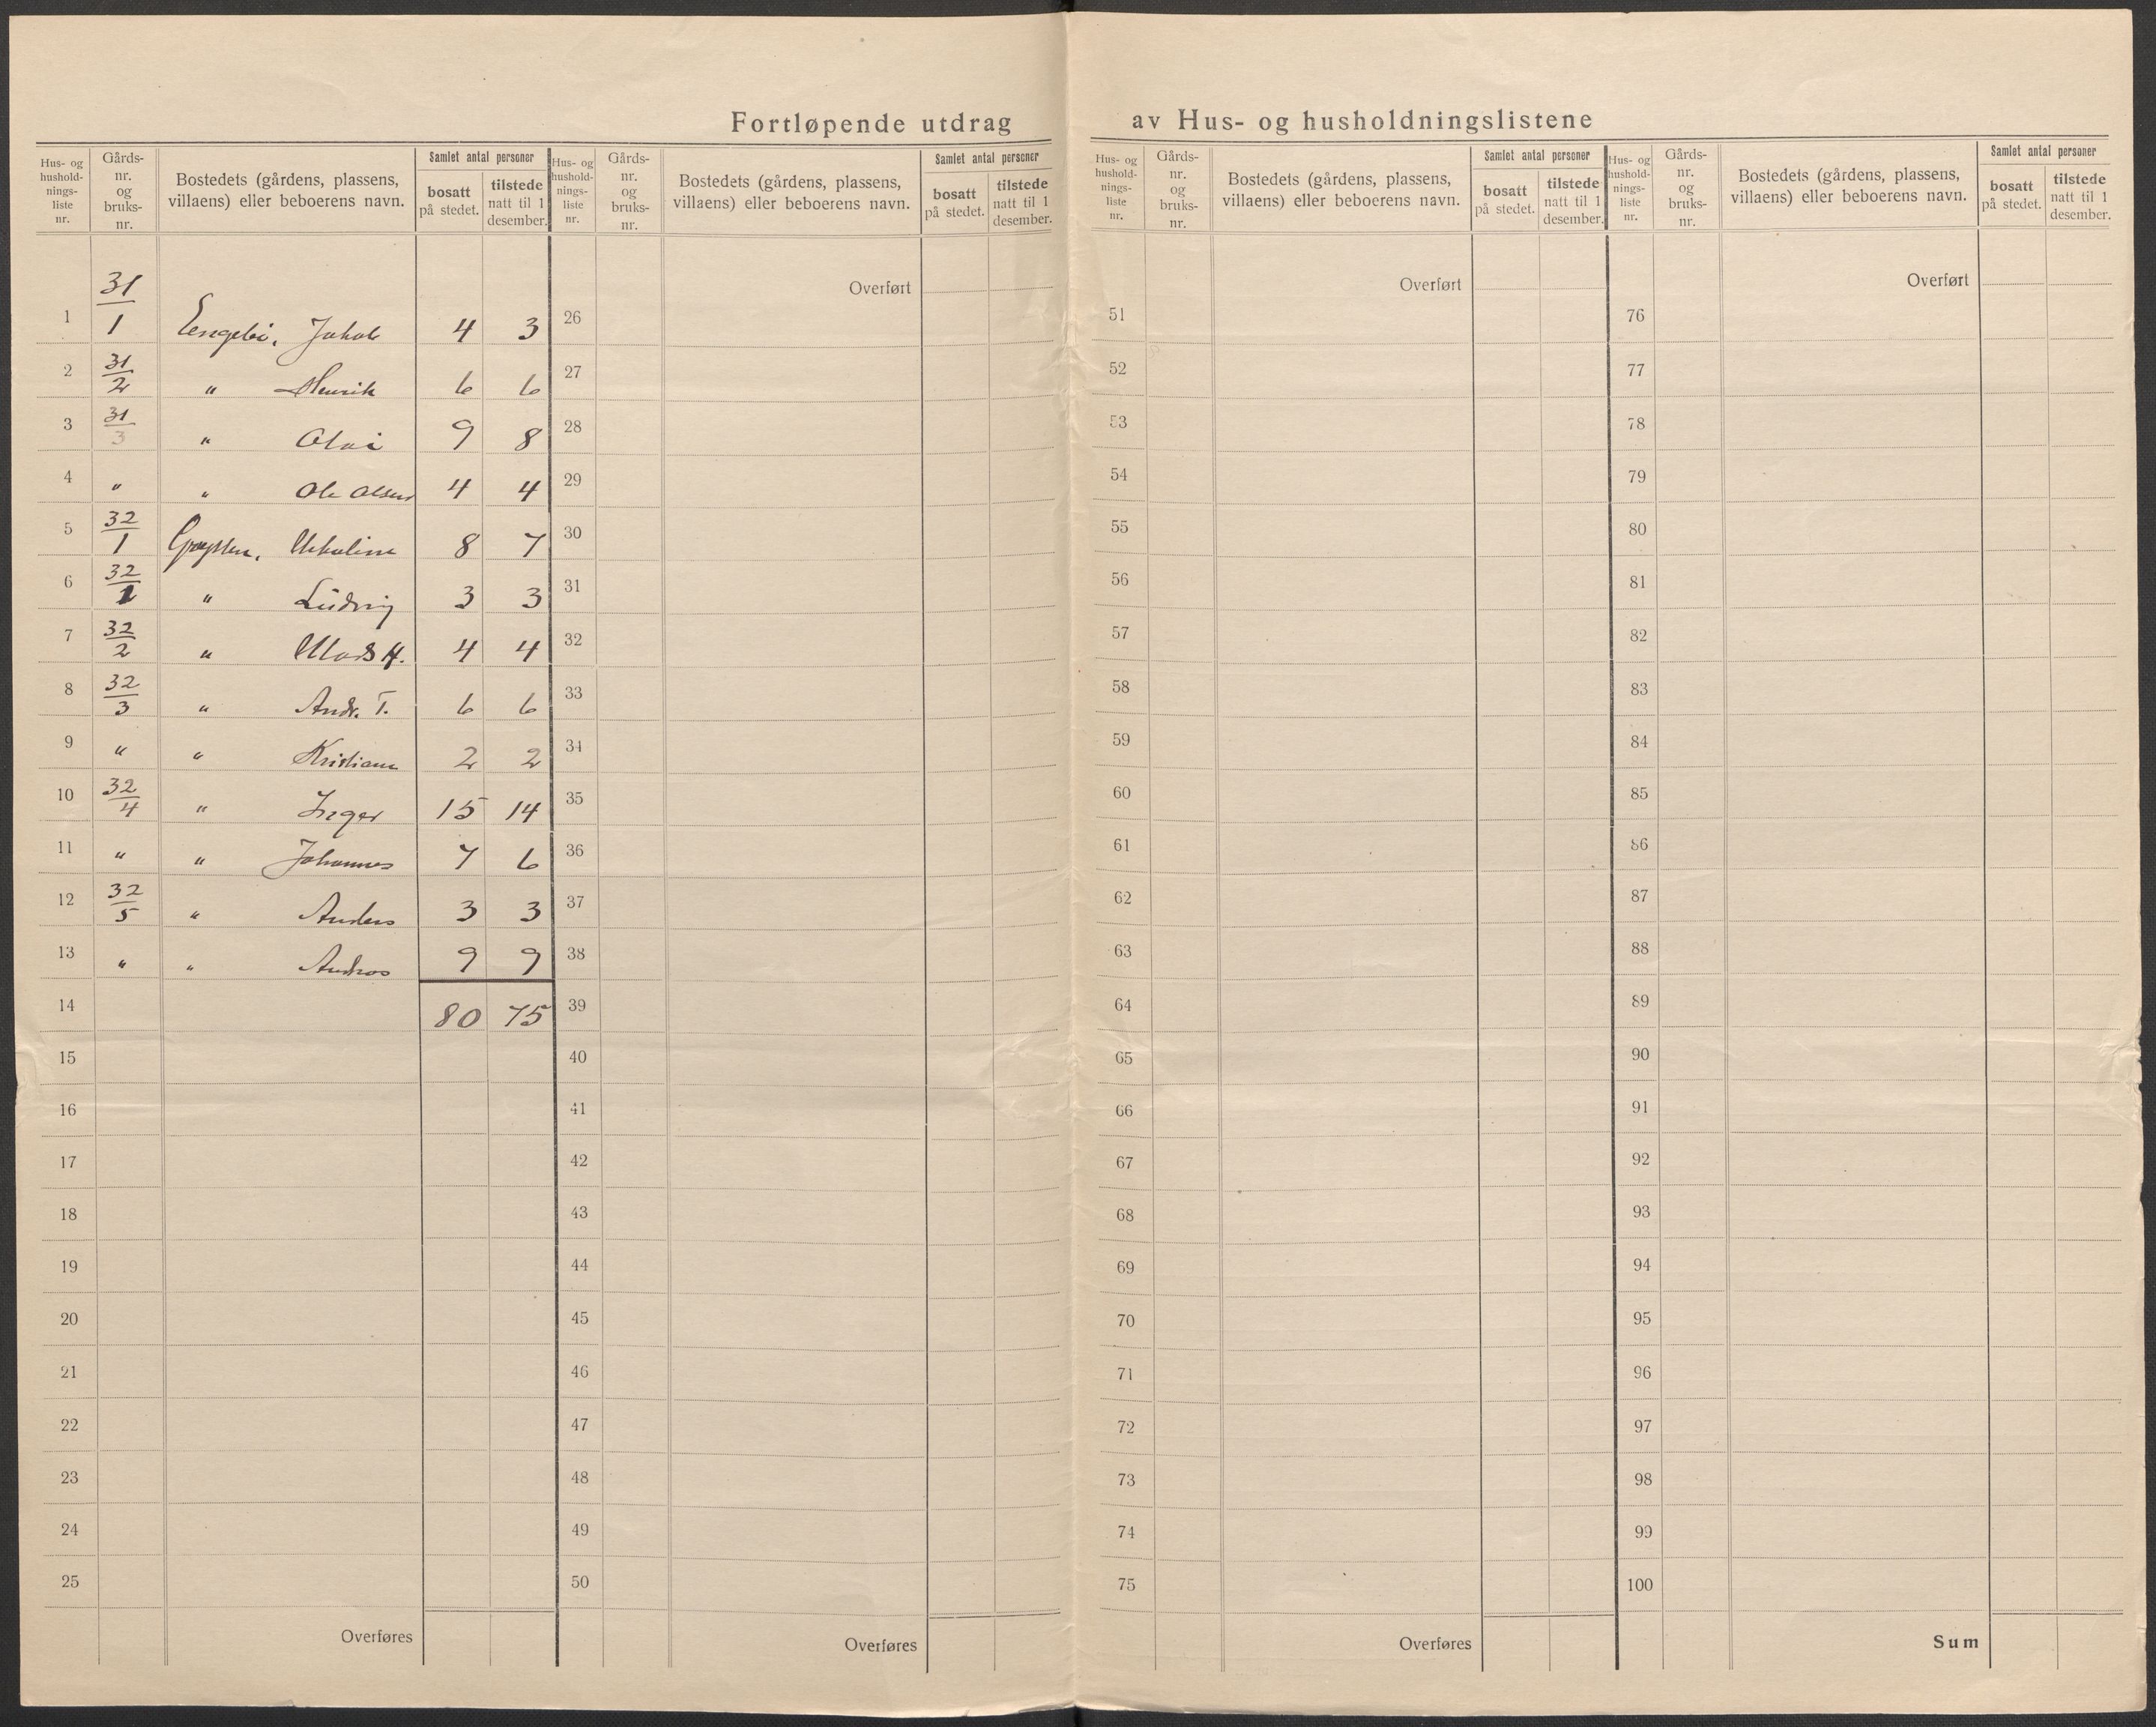 Fortløpende utdrag av Hus- og husholdningslistene
Hus- og hushold-nings-liste nr. Gårds-nr. og bruks-nr. Bostedets (gårdens, plassens, villaens) eller beboerens navn. Samlet antal personer bosatt på stedet. tilstede natt til 1 desember.
Hus- og hushold-nings-liste nr. Gårds-nr. og bruks-nr. Bostedets (gårdens, plassens, villaens) eller beboerens navn. Samlet antal personer bosatt på stedet. tilstede natt til 1 desember.
Hus- og hushold-nings-liste nr. Gårds-nr. og bruks-nr. Bostedets (gårdens, plassens, villaens) eller beboerens navn. Samlet antal personer bosatt på stedet. tilstede natt til 1 desember.
Hus- og hushold-nings-liste nr. Gårds-nr. og bruks-nr. Bostedets (gårdens, plassens, villaens) eller beboerens navn. Samlet antal personer bosatt på stedet. tilstede natt til 1 desember.
Overført Overført Overført
1 31/1 Jakob 4 3 26 51 76
2 31/2 " Henrik 6 6 27 52 77
3 31/3 " Olai 9 8 28 53 78
4 " " Ole Olsen 4 4 29 54 79
5 32/1 8 7 30 55 80
6 32/1 " Ludvig 3 3 31 56 81
7 32/2 " Mads H. 4 4 32 57 82
8 32/3 " Andr. T. 6 6 33 58 83
9 " " Kristiane 2 2 34 59 84
10 32/4 " Inger 15 14 35 60 85
11 " " Johannes 7 6 36 61 86
12 32/5 " Anders 3 3 37 62 87
13 " " Andreas 9 9 38 63 88
14 80 75 39 64 89
15 40 65 90
16 41 66 91
17 42 67 92
18 43 68 93
19 44 69 94
20 45 70 95
21 46 71 96
22 47 72 97
23 48 73 98
24 49 74 99
25 50 75 100
Overføres Overføres Overføres Sum